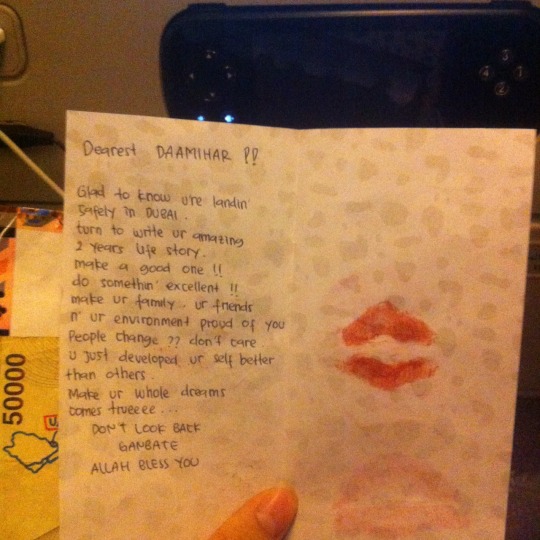 Dearest DAAMIHAR !!
Glad to know u're landin'
Safely in DUBAI.
turn to write ur amazing
2 years life story.
make a good one !!
do somethin' excellent !!
make ur family.. ur friends
n' ur environment proud of you
People change ?? don't care..
u just developed ur self better
than others.
Make ur whole dreams
comes trueeee...
DON'T LOOK BACK
GANBATE
ALLAH BLESS YOU
50000
3
4 1
2